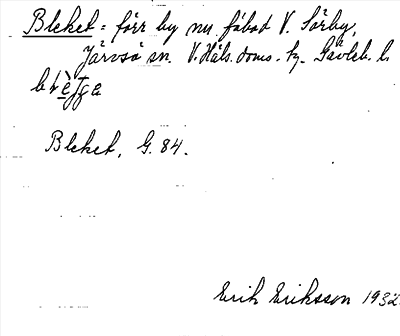 Bleket = förr by nu fäbod V. Sörby,
Järvsö sn. V. Häls. doms. tg. Gävleb. l.
Bleket, G. 84.
Erik Eriksson 1932.